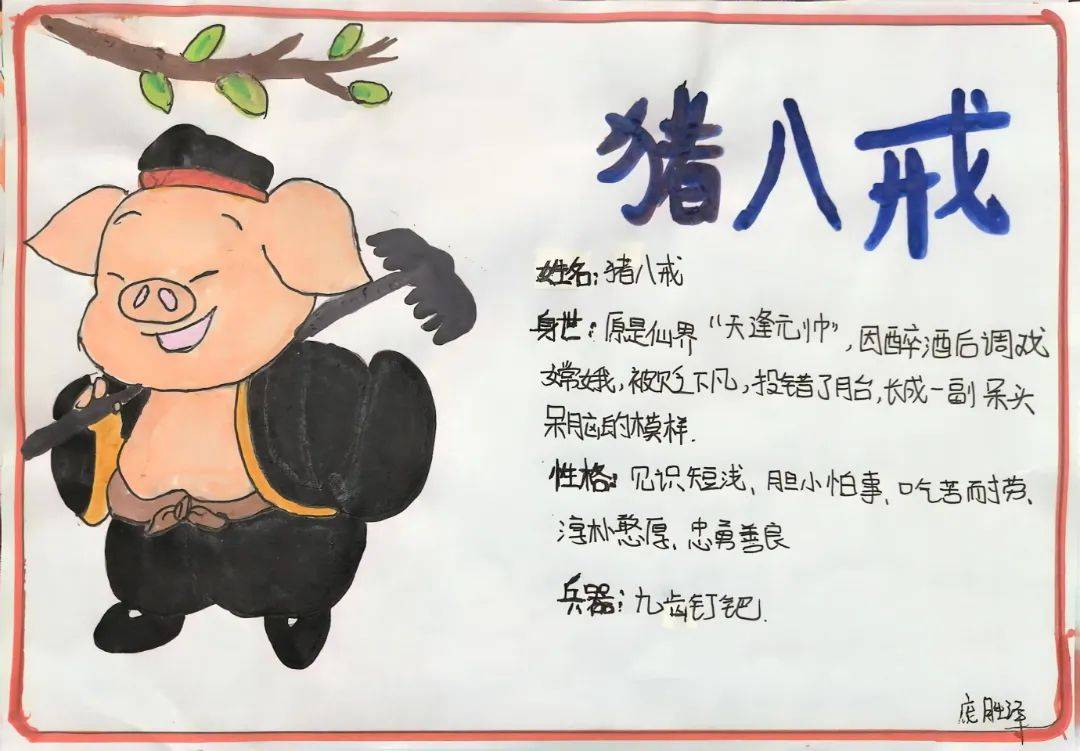 猪八戒
姓名：猪八戒
身世：原是仙界“天逢元帅”，因醉酒后调戏
嫦娥，被贬下凡，投错了胎，长成一副呆头
呆脑的模样.
性格：见识短浅、胆小怕事、吃苦耐劳、
淳朴憨厚、忠勇善良
兵器：九齿钉钯.
庞胜泽